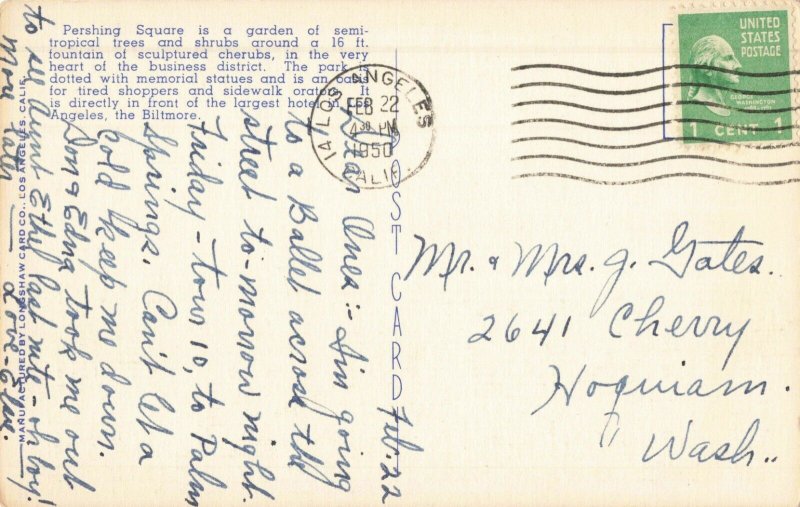 Pershing Square is a garden of semi-
tropical trees and shrubs around a 16 ft.
fountain of sculptured cherubs, in the very
heart of the business district. The park is
dotted with memorial statues and is an oasis
for tired shoppers and sidewalk orators. It
is directly in front of the largest hotel in Los
Angeles, the Biltmore.
MANUFACTURED BY LONGSHAW CARD CO., LOS ANGELES, CALIF.
POST CARD
LOS ANGELES
14
CALIF.
FEB 22
4 30 PM
1950
UNITED
STATES
POSTAGE
GEORGE
WASHINGTON
1 CENT 1
Feb. 22
Dear Ones:- Am going
to a Ballet across the
street to-morrow night.
Friday - tour 10, to Palm
Springs. Can't let a
cold keep me down.
Don & Edna took me out
to see Aunt Ethel last nite - oh boy!
More later — Love - Elsie.
Mr. & Mrs. J. Gates.
2641 Cherry
Hoquiam.
Wash..